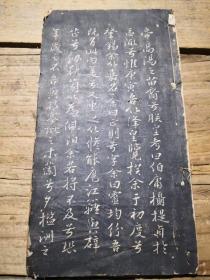 帝高陽之苗裔兮朕皇考曰伯庸攝提貞於
孟陬兮惟庚寅吾以降皇覽揆余于初度兮
肇錫余以嘉名名余曰正則兮字余曰靈均紛吾
既有此內美兮又重之以修能扈江離與辟
芷兮紉秋蘭以為佩汩余若將不及兮恐
年歲之不吾與朝搴阰之木蘭兮夕攬洲之